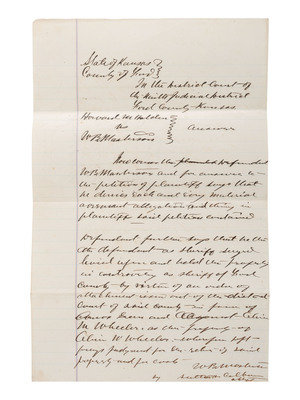 State of Kansas }
County of Ford }
In the District Court of
the Ninth Judicial District
Ford County Kansas
Howard M Holden
vs Answer
W B Masterson
Now comes the defendant
W B Masterson and for answer to
the petition of plaintiff says that
he denies each and every material
averment allegation and thing in
plaintiffs said petition contained
Defendant further says that he
the defendant as sheriff
levied upon and holds the property
in controversy as sheriff of Ford
County by virtue of an order of
attachment issued out of the district
Court of said county in favor of
and against Alvin
W. Wheeler as the property of
Alvin W Wheeler wherefore deft
prays judgment for the return of said
property and for costs
W B Masterson
by Sutton & Colborn
attys